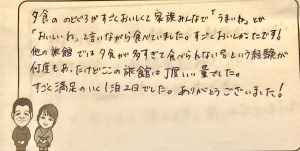 夕食の のどぐろがすごくおいしくて 家族みんなで「うまいね」とか
「おいしいね」と言いながら食べていました。すごくおいしかったです!
他の旅館では夕食が多すぎて食べられないという経験が
何度もあったけどこの旅館は丁度いい量でした。
すごく満足のいく1泊2日でした。ありがとうございました!